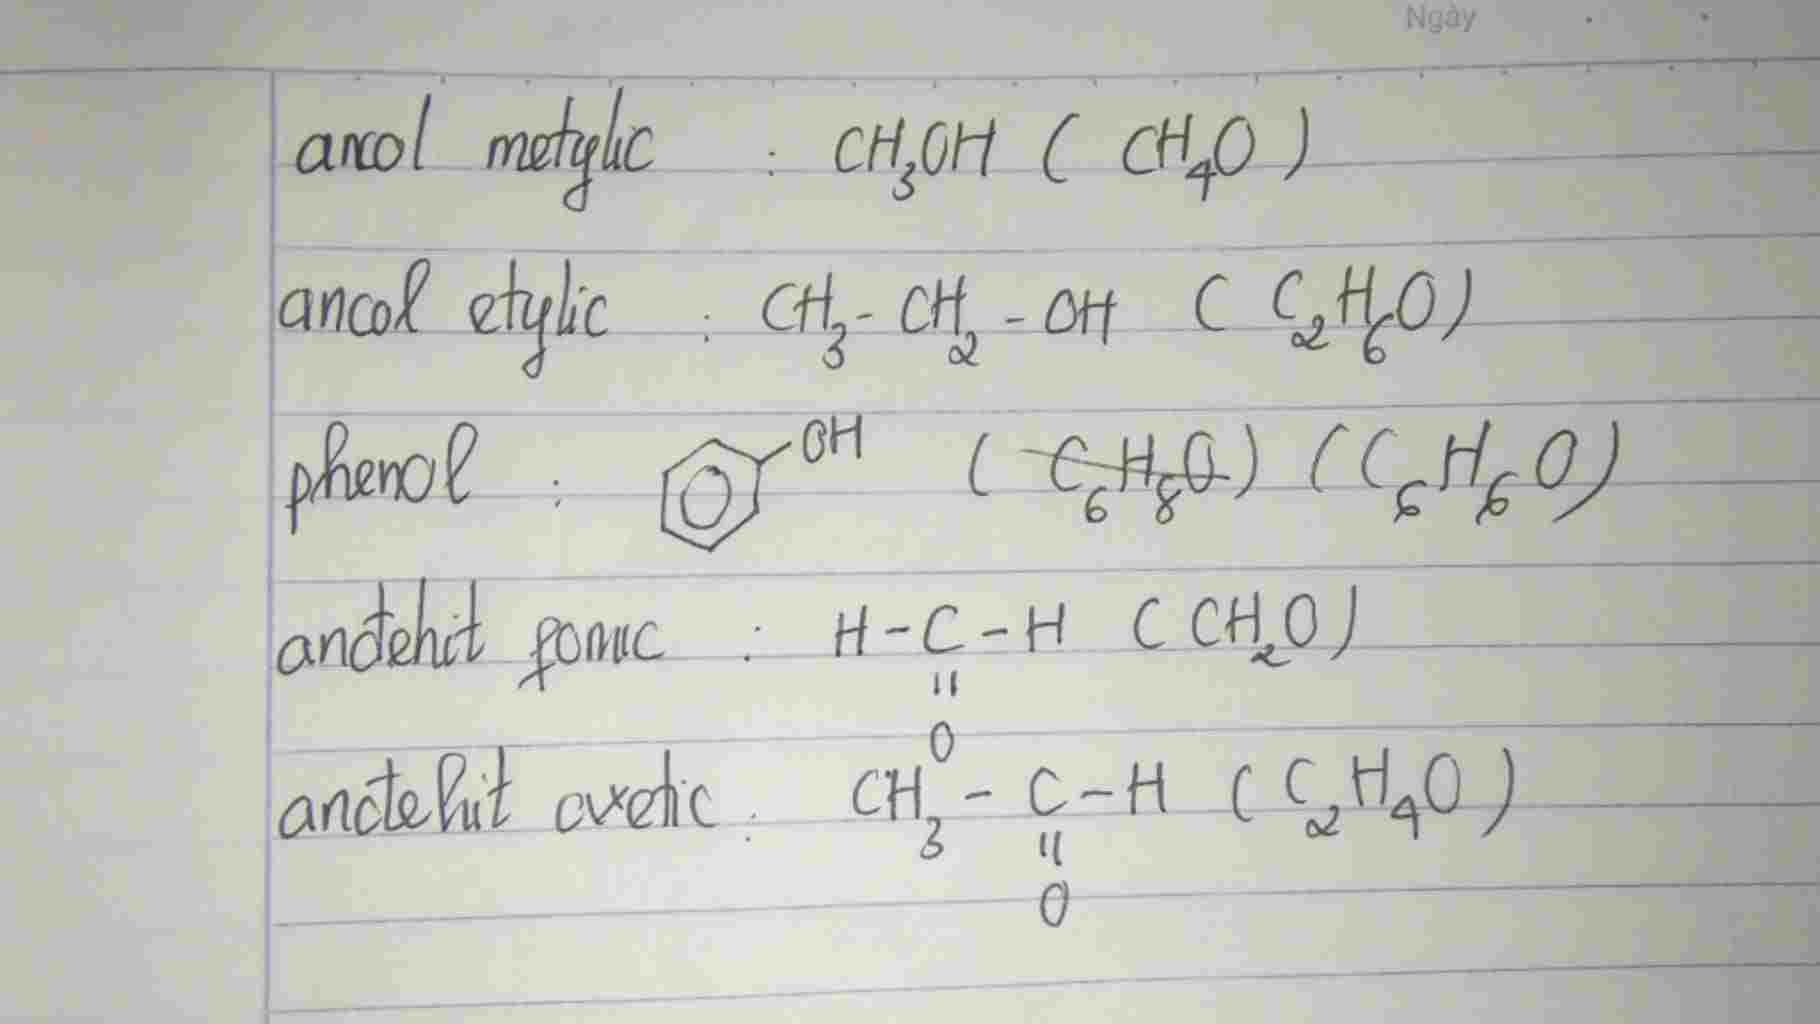 Ngày
ancol metylic : CH₃OH ( CH₄O )
ancol etylic : CH₃ - CH₂ - OH ( C₂H₆O )
phenol : OH ( C₆H₈O ) ( C₆H₆O )
anđehit fomic : H - C - H ( CH₂O )
||
O
anđehit axetic : CH₃ - C - H ( C₂H₄O )
||
O